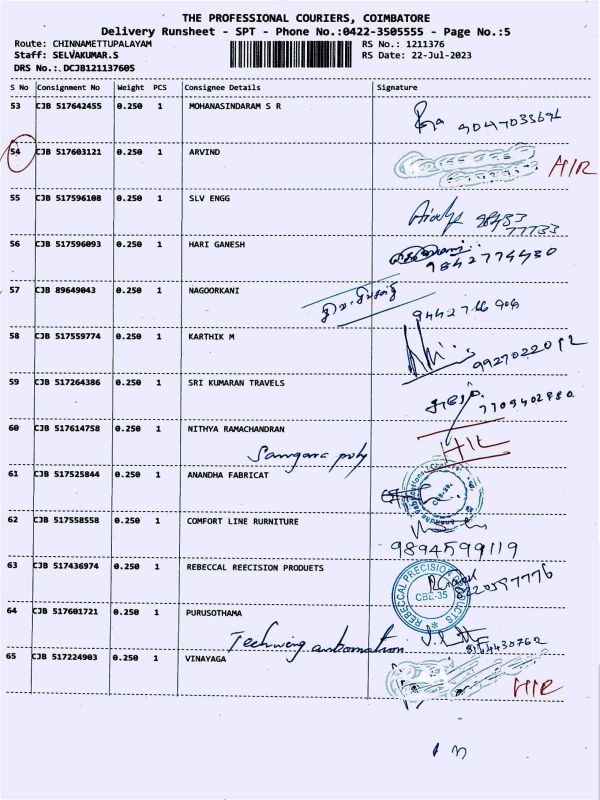 THE PROFESSIONAL COURIERS, COIMBATORE
Delivery Runsheet - SPT - Phone No.:0422-3505555 - Page No.:5
Route: CHINNAMETTUPALAYAM RS No.: 1211376
Staff: SELVAKUMAR.S RS Date: 22-Jul-2023
DRS No.:.DCJB121137605
S No Consignment No Weight PCS Consignee Details Signature
53 CJB 517642455 0.250 1 MOHANASINDARAM S R
54 CJB 517603121 0.250 1 ARVIND
55 CJB 517596108 0.250 1 SLV ENGG
77733
56 CJB 517596093 0.250 1 HARI GANESH
9842774430
57 CJB 89649043 0.250 1 NAGOORKANI
58 CJB 517559774 0.250 1 KARTHIK M
59 CJB 517264386 0.250 1 SRI KUMARAN TRAVELS
60 CJB 517614758 0.250 1 NITHYA RAMACHANDRAN
61 CJB 517525844 0.250 1 ANANDHA FABRICAT
62 CJB 517558558 0.250 1 COMFORT LINE RURNITURE
9894599119
63 CJB 517436974 0.250 1 REBECCAL REECISION PRODUETS
REBECCAL PRECISION PRODUCTS
CBE-35
64 CJB 517601721 0.250 1 PURUSOTHAMA
Techwing automation
65 CJB 517224903 0.250 1 VINAYAGA